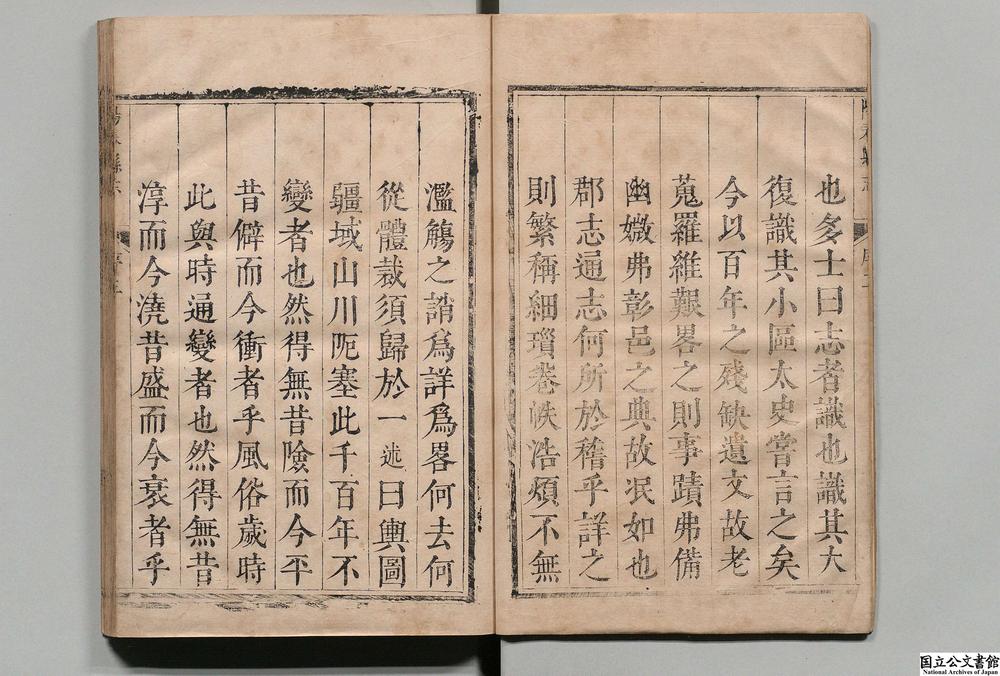 也多士曰志者識也識其大
復識其小區太史嘗言之矣
今以百年之殘缺遺文故老
蒐羅維艱畧之則事蹟弗備
幽微弗彰邑之典故泯如也
郡志通志何所於稽乎詳之
則繁稱細瑣卷帙浩煩不無
濫觴之誚爲詳爲畧何去何
從體裁須歸於一 述曰輿圖
疆域山川阨塞此千百年不
變者也然得無昔險而今平
昔僻而今衝者乎風俗歲時
此與時通變者也然得無昔
淳而今澆昔盛而今衰者乎
国立公文書館
National Archives of Japan